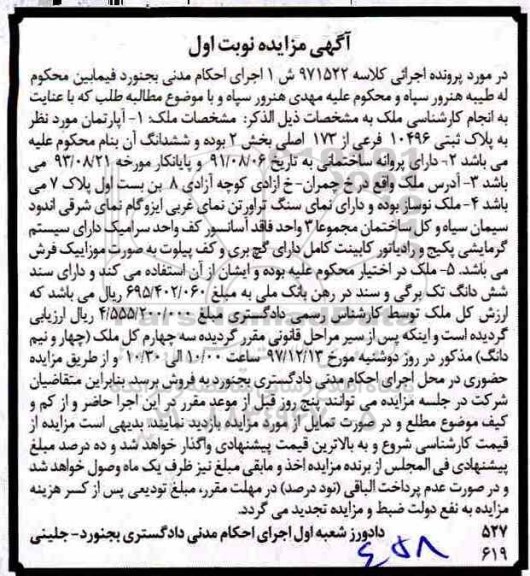 آگهی مزایده نوبت اول
در مورد پرونده اجرائی کلاسه ۹۷۱۵۲۲ ش ۱ اجرای احکام مدنی بجنورد فیمابین محکوم
له طیبه هنرور سپاه و محکوم علیه مهدی هنرور سپاه و با موضوع مطالبه طلب که با عنایت
به انجام کارشناسی ملک به مشخصات ذیل الذکر: مشخصات ملک: ۱- آپارتمان مورد نظر
به پلاک ثبتی ۱۰۴۹۶ فرعی از ۱۷۳ اصلی بخش ۲ بوده و ششدانگ آن بنام محکوم علیه
می باشد ۲- دارای پروانه ساختمانی به تاریخ ۹۱/۰۸/۰۶ و پایانکار مورخه ۹۳/۰۸/۲۱ می
باشد ۳- آدرس ملک واقع در خ چمران-خ ازادی کوچه آزادی ۸ بن بست اول پلاک ۷ می
باشد ۴- ملک نوساز بوده و دارای نمای سنگ تراورتن نمای غربی ایزوگام نمای شرقی اندود
سیمان سیاه و کل ساختمان مجموعا ۳ واحد فاقد آسانسور کف واحد سرامیک دارای سیستم
گرمایشی پکیج و رادیاتور کابینت کامل دارای گچ بری و کف پیلوت به صورت موزاییک فرش
می باشد. ۵- ملک در اختیار محکوم علیه بوده و ایشان از آن استفاده می کند و دارای سند
شش دانگ تک برگی و سند در رهن بانک ملی به مبلغ ۶۹۵/۴۰۲/۰۶۰ ریال می باشد که
ارزش کل ملک توسط کارشناس رسمی دادگستری مبلغ ۴/۵۵۵/۲۰۰/۰۰۰ ریال ارزیابی
گردیده است و اینکه پس از سیر مراحل قانونی مقرر گردیده سه چهارم کل ملک (چهار و نیم
دانگ) مذکور در روز دوشنبه مورخ ۹۷/۱۲/۱۳ ساعت ۱۰/۰۰ الی ۱۰/۳۰ و از طریق مزایده
حضوری در محل اجرای احکام مدنی دادگستری بجنورد به فروش برسد بنابراین متقاضیان
شرکت در جلسه مزایده می توانند پنج روز قبل از موعد مقرر در این اجرا حاضر و از کم و
کیف موضوع مطلع و در صورت تمایل از مورد مزایده بازدید نمایند، بدیهی است مزایده از
قیمت کارشناسی شروع و به بالاترین قیمت پیشنهادی واگذار خواهد شد و ده درصد مبلغ
پیشنهادی فی المجلس از برنده مزایده اخذ و مابقی مبلغ نیز ظرف یک ماه وصول خواهد شد
و در صورت عدم پرداخت الباقی (نود درصد) در مهلت مقرر، مبلغ تودیعی پس از کسر هزینه
مزایده به نفع دولت ضبط و مزایده تجدید می گردد.
۵۲۷ دادورز شعبه اول اجرای احکام مدنی دادگستری بجنورد- جلینی
۶۱۹